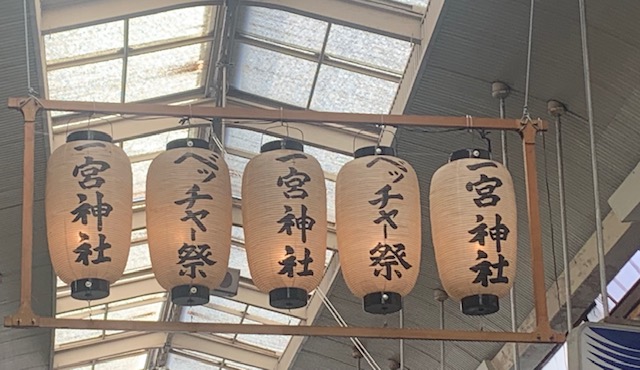 一宮神社
ベッチャー祭
一宮神社
ベッチャー祭
一宮神社